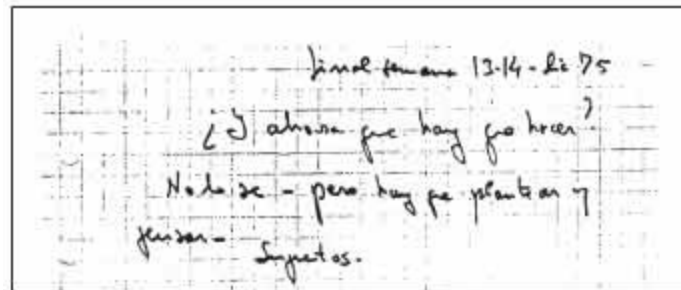 final semana 13-14-Dic 75
¿Y ahora que hay que hacer?
No lo se - pero hay que plantear y
pensar-
Sujetos.